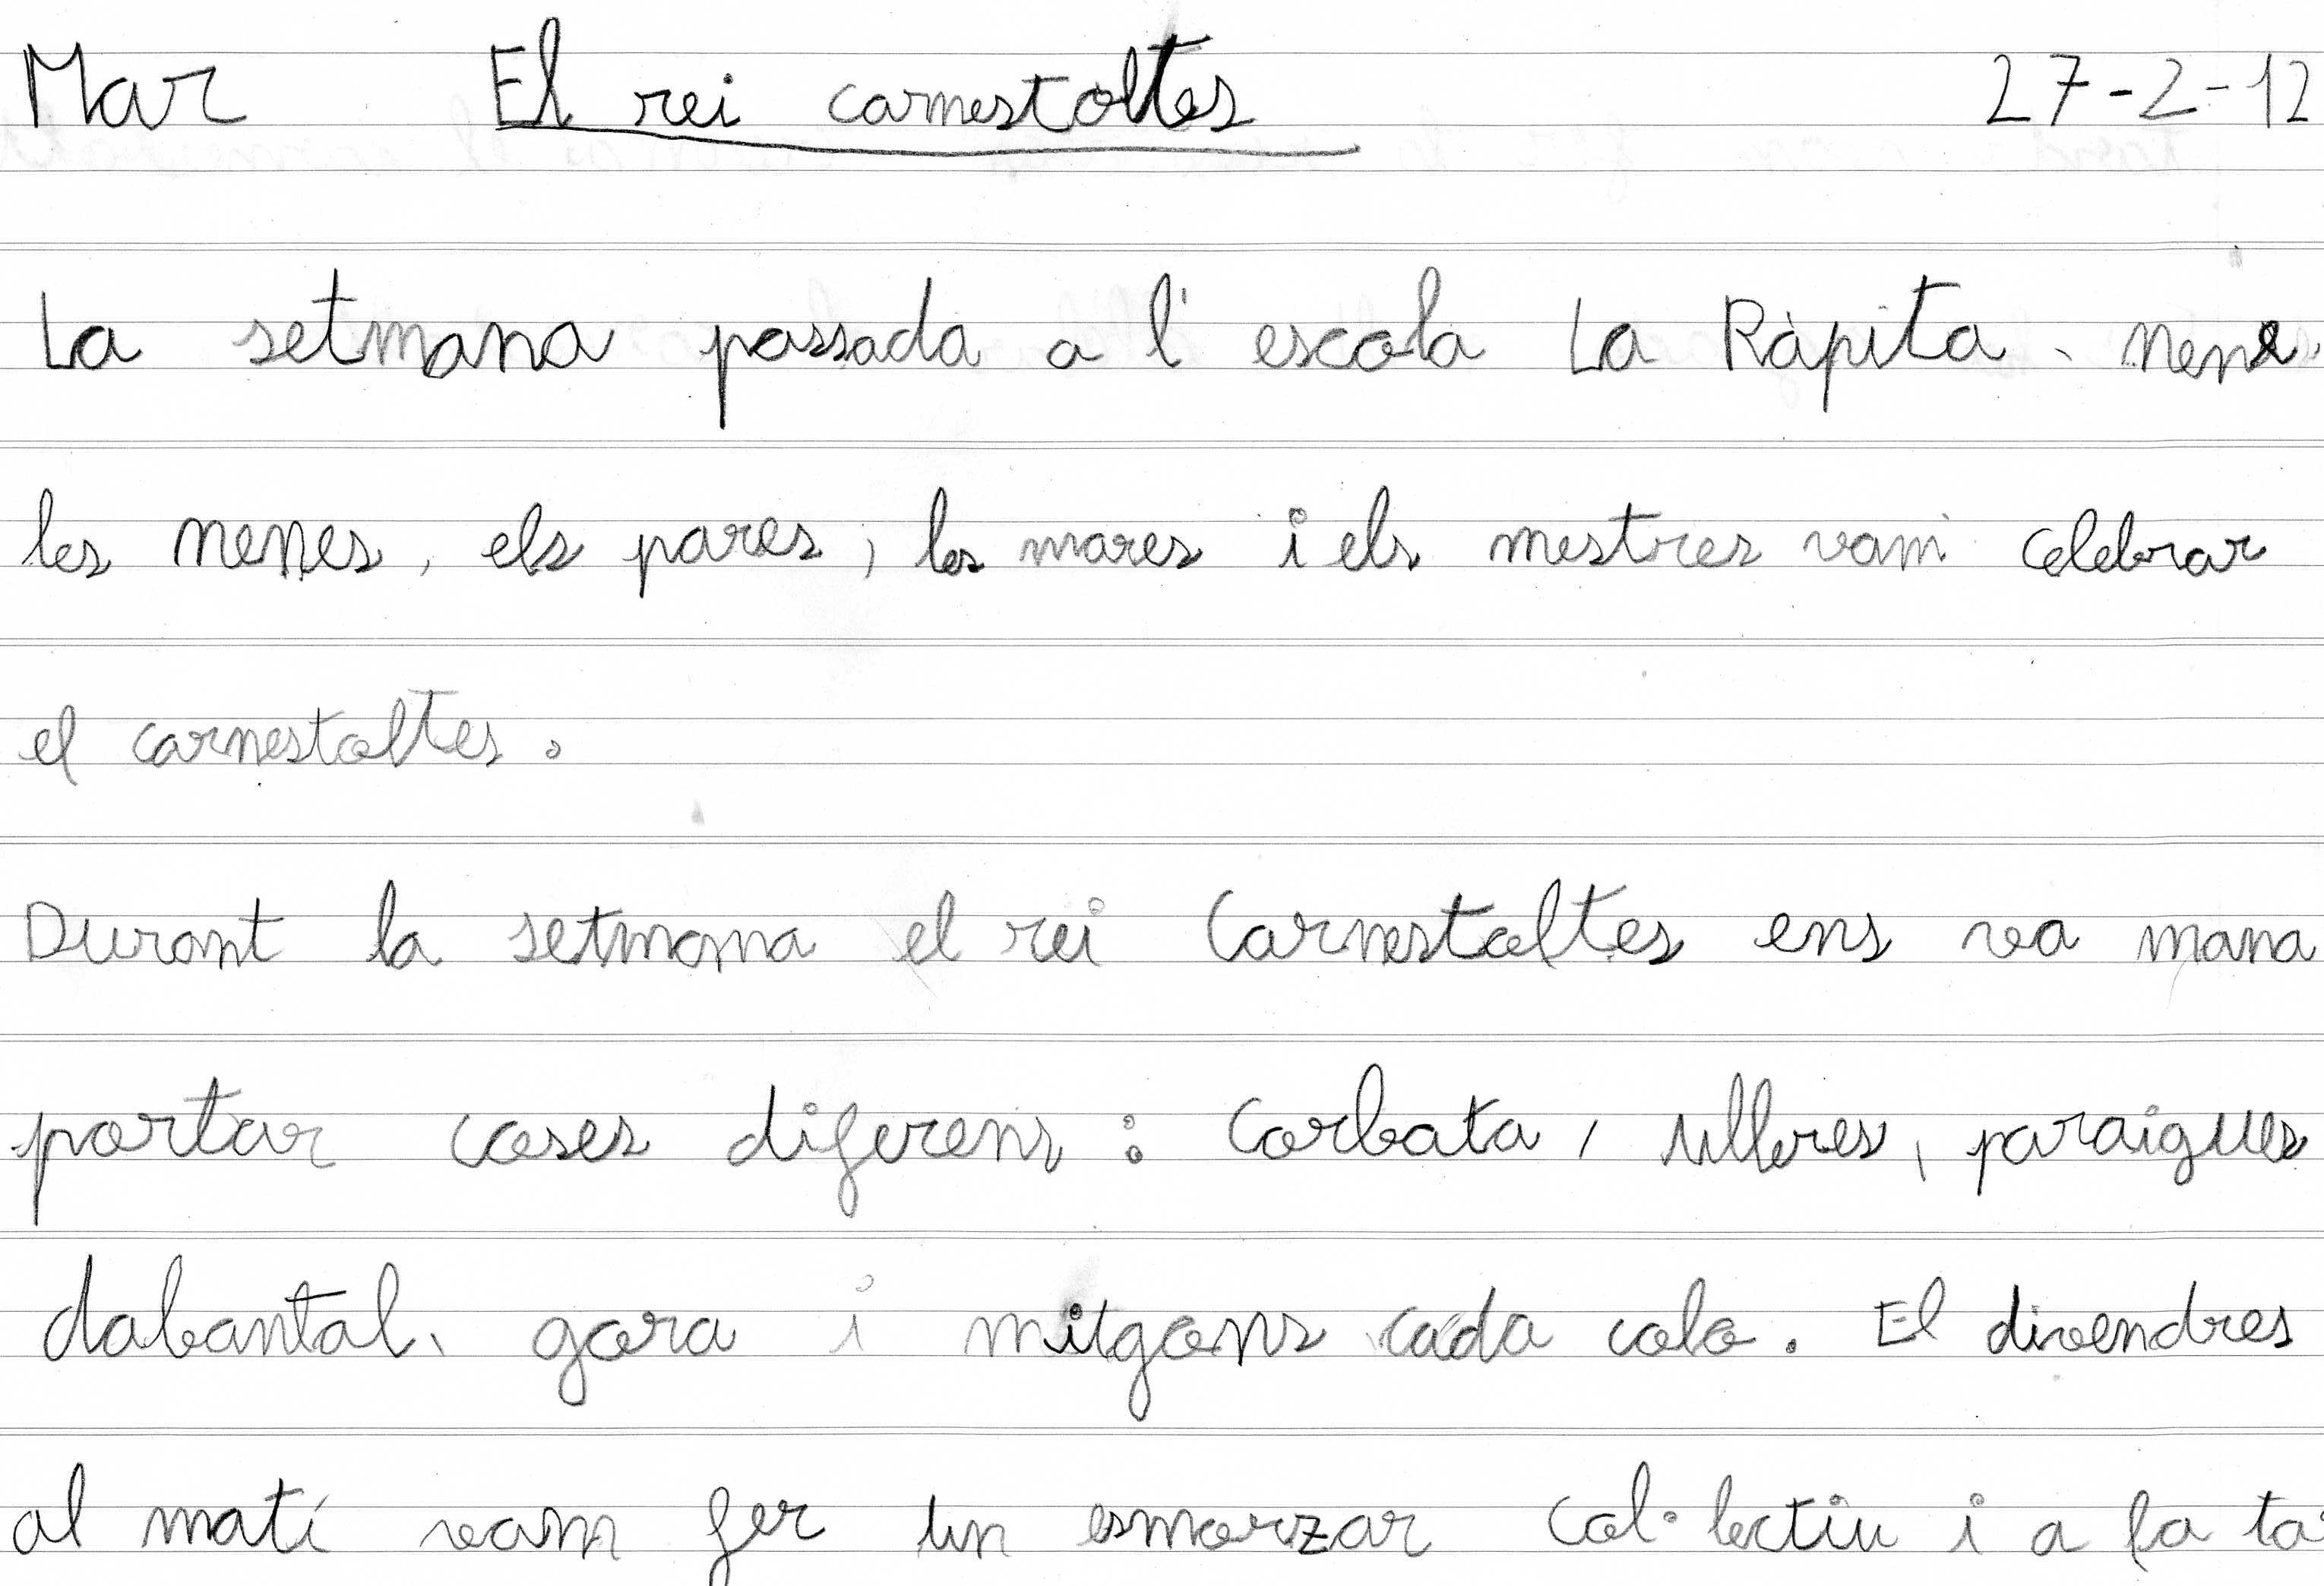 Mar El rei carnestoltes 27-2-12
La setmana passada a l'escola La Ràpita, nens,
les nenes, els pares, les mares i els mestres vam celebrar
el carnestoltes.
Durant la setmana el rei Carnestoltes ens va mana
portar coses diferens: Corbata, ulleres, paraigues
dabantal, gora i mitgons cada colo. El divendres
al matí vam fer un esmorzar col·lectiu i a la ta